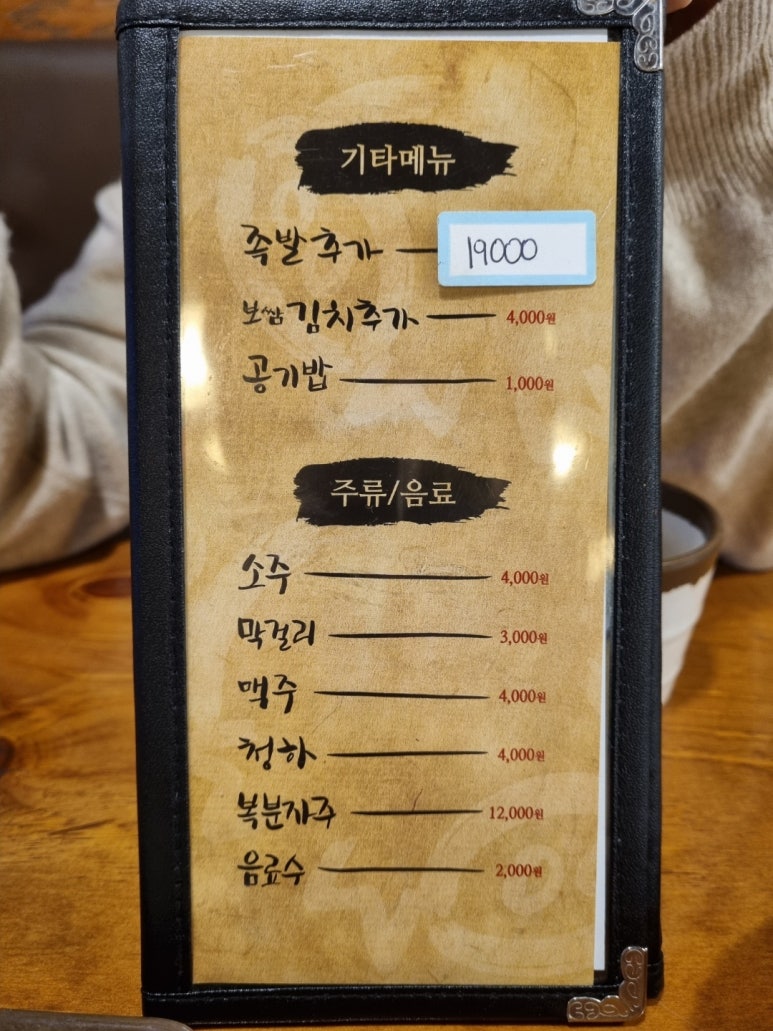 기타메뉴
족발추가 19000
보쌈김치추가 4,000원
공기밥 1,000원
주류/음료
소주 4,000원
막걸리 3,000원
맥주 4,000원
청하 4,000원
복분자주 12,000원
음료수 2,000원